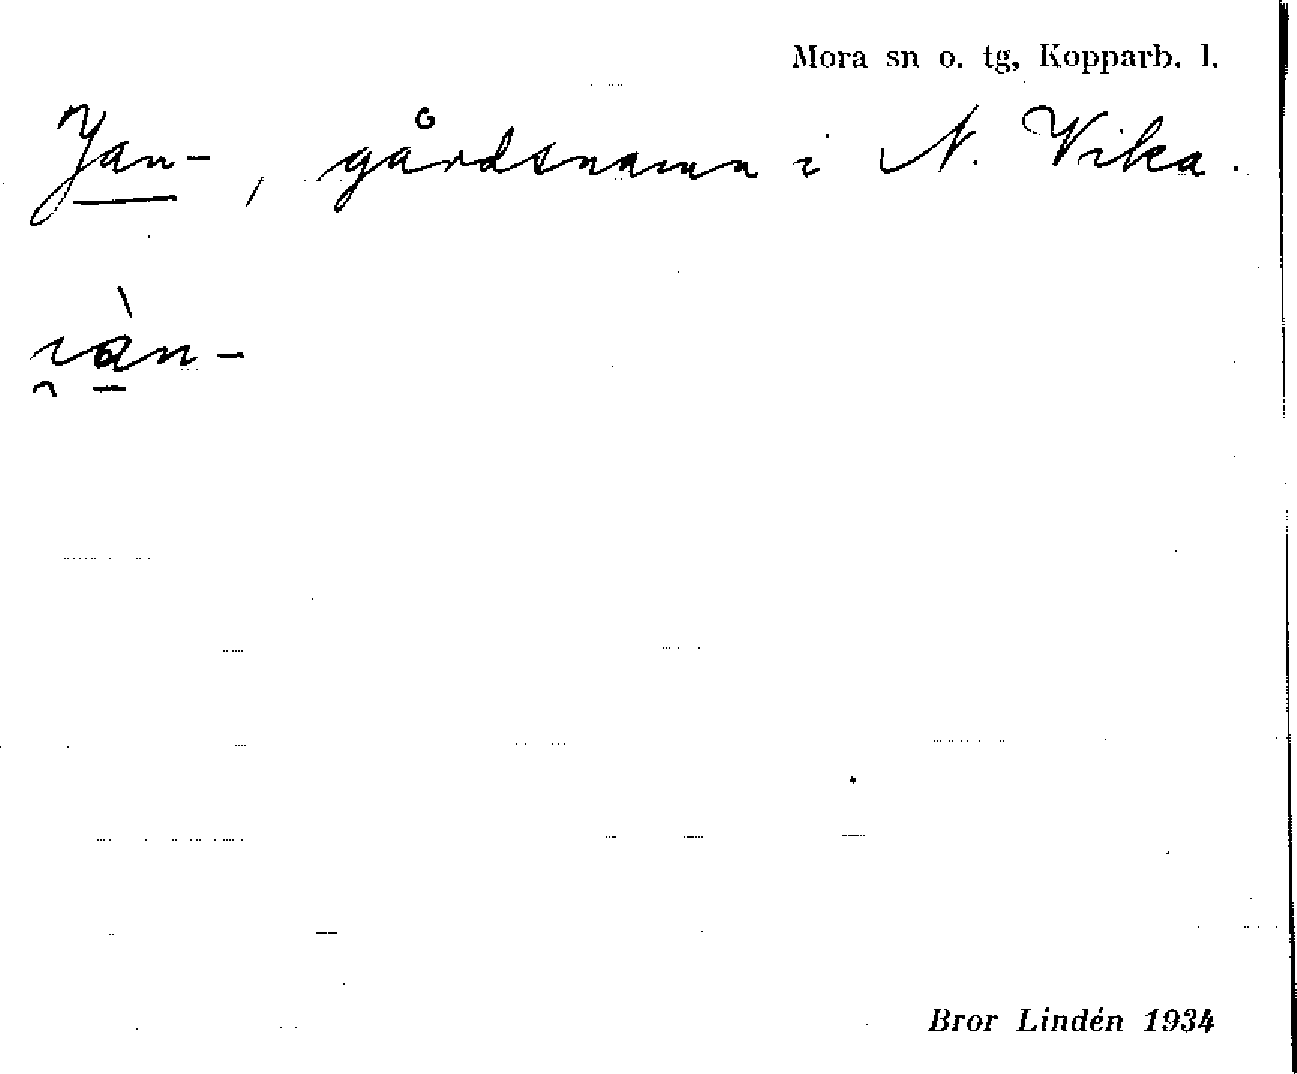 Mora sn o. tg, Kopparb. l.
Jan-, gårdsnamn i N. Vika.
Bror Lindén 1934